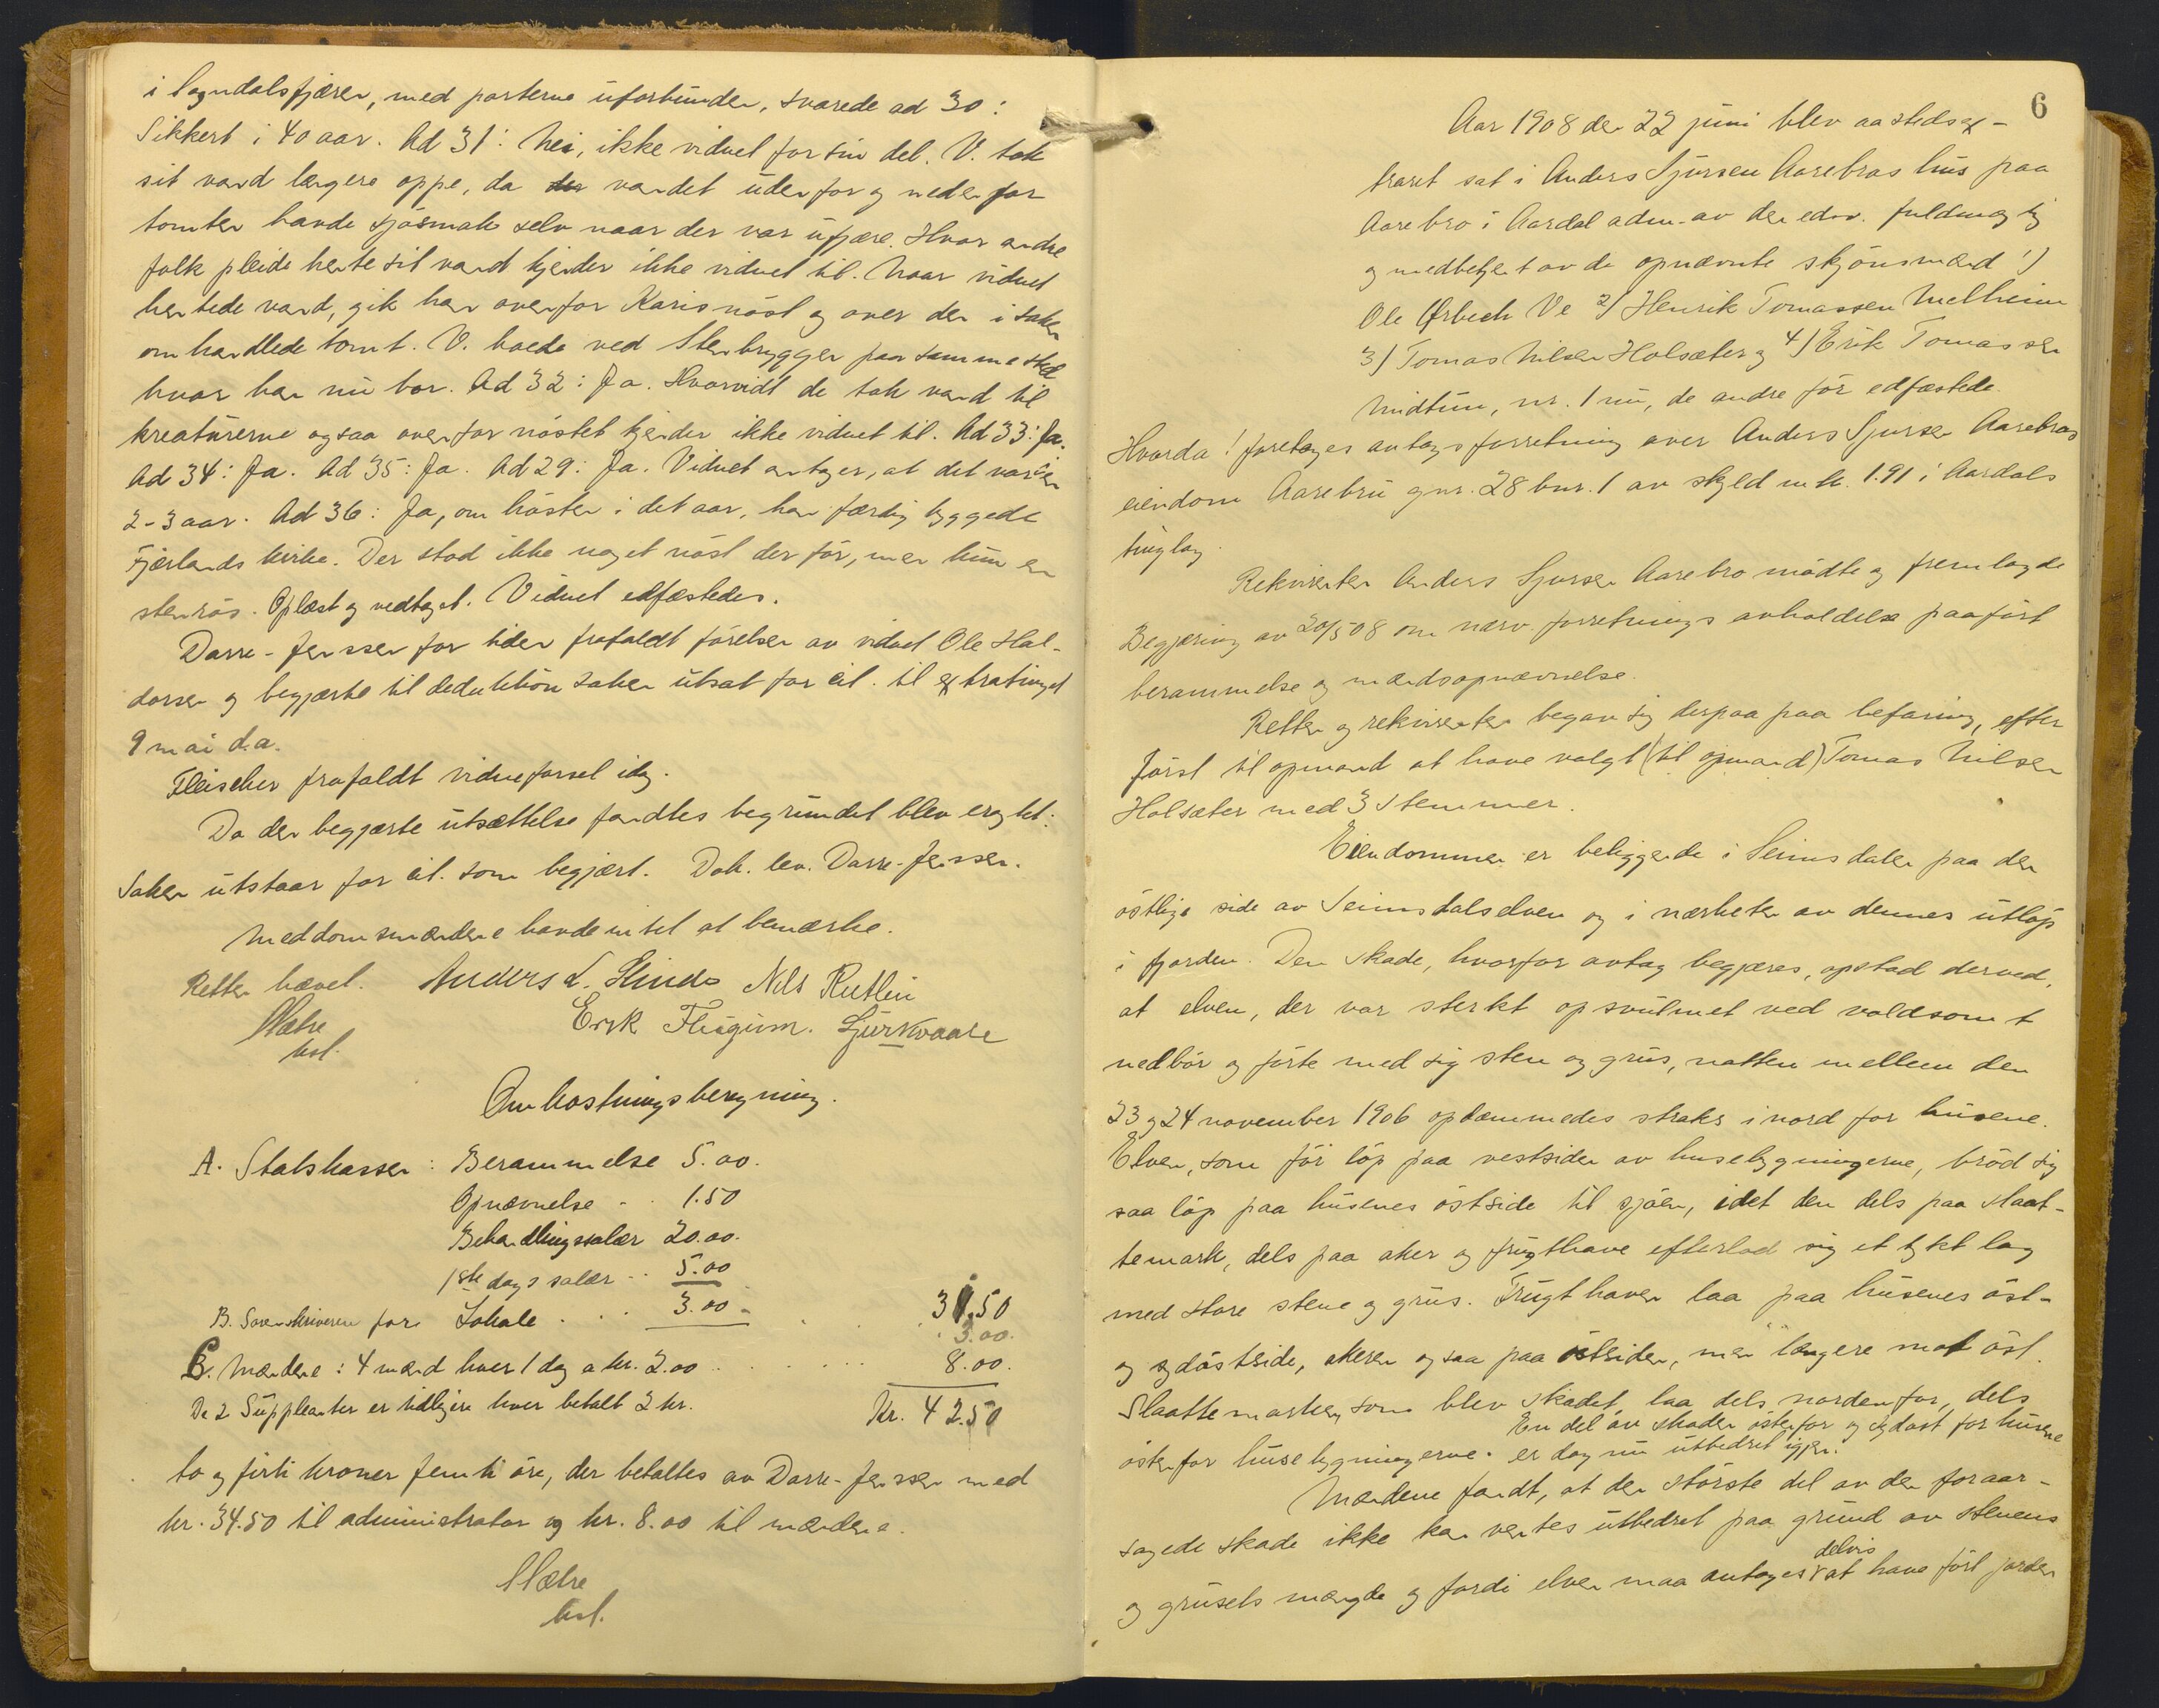 i Sogndalsfjæren, med parterne uforbunden, svarede ad 30:
Sikkert i 40 aar. Ad 31: Nei, ikke vidnet for sin del. V. tok
sit vand længere oppe, da vandet utenfor og nedenfor
tomten havde sjøsmak selv naar der var utfjære. Hvor andre
folk pleide hente sit vand kjender ikke vidnet til. Naar vidnet
hentede vand, gik han ovenfor Karisnøst og over den i saken
omhandlede tomt. V. boede ved Stenbryggen paa samme sted
hvor han nu bor. Ad 32: Ja. Hvorvidt de tok vand til
kreaturerne ogsaa ovenfor nøstet kjender ikke vidnet til. Ad 33: Ja.
Ad 34: Ja. Ad 35: Ja. Ad 29: Ja. Vidnet antager, at det var en
2-3 aar. Ad 36: Ja, om høsten i det aar, han færdig byggede
Fjærlands kirke. Der stod ikke noget nøst der før, men kun en
stenrøs. Oplæst og vedtaget. Vidnet edfæstedes.
Darre-Jenssen for tiden frafaldt førelsen av vidnet Ole Hal-
dorsen og begjærte til deduktion saken utsat for cit. til extratinget
9 mai d.a.
Fleischer frafaldt vidneførsel idag.
Da den begjærte utsættelse fandtes begrundet blev eragtet:
Saken utstaar for cit. som begjært. Dok. lev. Darre-Jenssen.
Meddomsmændene havde intet at bemærke.
Retten hævet. Anders L. Slinde Nils Rutlin
Mætre Erik Flugum. Sjur Kvaale
kst.
Omkostningsberegning.
A. Statskassen: Berammelse 5.00.
Opnævnelse - 1.50
Behandlingssalær 20.00.
1ste dags salær .. 5.00
31.50
B. Sorenskriveren for Lokale . . . 3.00 - 3.00.
C. Mændene: 4 mænd hver 1 dag a kr. 2.00 . . . . . . 8.00.
De 2 Suppleanter er tidligere hver betalt 2 kr. Kr. 42.50
to og førti kroner femti øre, der betaltes av Darre-Jenssen med
kr. 34.50 til administrator og kr. 8.00 til mændene.
Mætre
kst.
6
Aar 1908 den 22 juni blev aastedsex-
traret sat i Anders Sjursen Aarebros hus paa
Aarebro i Aardal adm. av den edsv. fuldmægtig
og medbetjent av de opnævnte skjønsmænd 1)
Ole Ørbech Ve 2) Henrik Tomassen Melheim
3) Tomas Nilsen Holsæter og 4) Erik Tomassen
Midtun, nr. 1 nu, de andre før edfæstede.
Hvorda! foretoges avtagsforretning over Anders Sjursen Aarebros
eiendom Aarebru gnr. 28 bnr. 1 av skyld mk. 1.91 i Aardals
tinglag.
Rekvirenten Anders Sjursen Aarebro mødte og fremlagde
Begjæring av 20/5 08 om nærv. forretnings avholdelse paaført
berammelse og mændsopnævnelse.
Retten og rekvirenten begav sig derpaa paa befaring, efter
først til opmand at have valgt (til opmand) Tomas Nilsen
Holsæter med 3 stemmer.
Eiendommen er beliggende i Seimsdalen paa den
østlige side av Seimsdalselven og i nærheten av dennes utløp
i fjorden. Den skade, hvorfor avtag begjæres, opstod derved,
at elven, der var sterkt opsvulmet ved voldsomt
nedbør og førte med sig sten og grus, natten mellem den
23 og 24 november 1906 opdæmmedes straks i nord for husene.
Elven, som før løp paa vestsiden av husebygningerne, brød sig
saa løp paa husenes østside til sjøen, idet den dels paa slaat-
temark, dels paa aker og frugthave efterlod sig et tykt lag
med store stene og grus. Frugthaven laa paa husenes øst-
og sydøstside, akeren ogsaa paa østsiden, men længere mot øst.
Slaattemarken, som blev skadet, laa dels nordenfor, dels
En del av skaden østenfor og sydøst for husene
østenfor husebygningerne. er dog nu utbedret igjen.
Mændene fandt, at den største del av den foraar-
sagede skade ikke kan ventes utbedret paa grund av stenens
delvis
og grusets mængde og fordi elven maa antages at have ført jorden